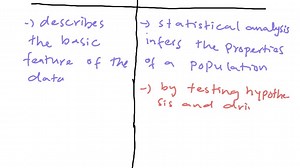 -) describes
the basic
feature of the
data
-) statistical analysis
infers the properties
of a population
-) by testing hypothe
sis and